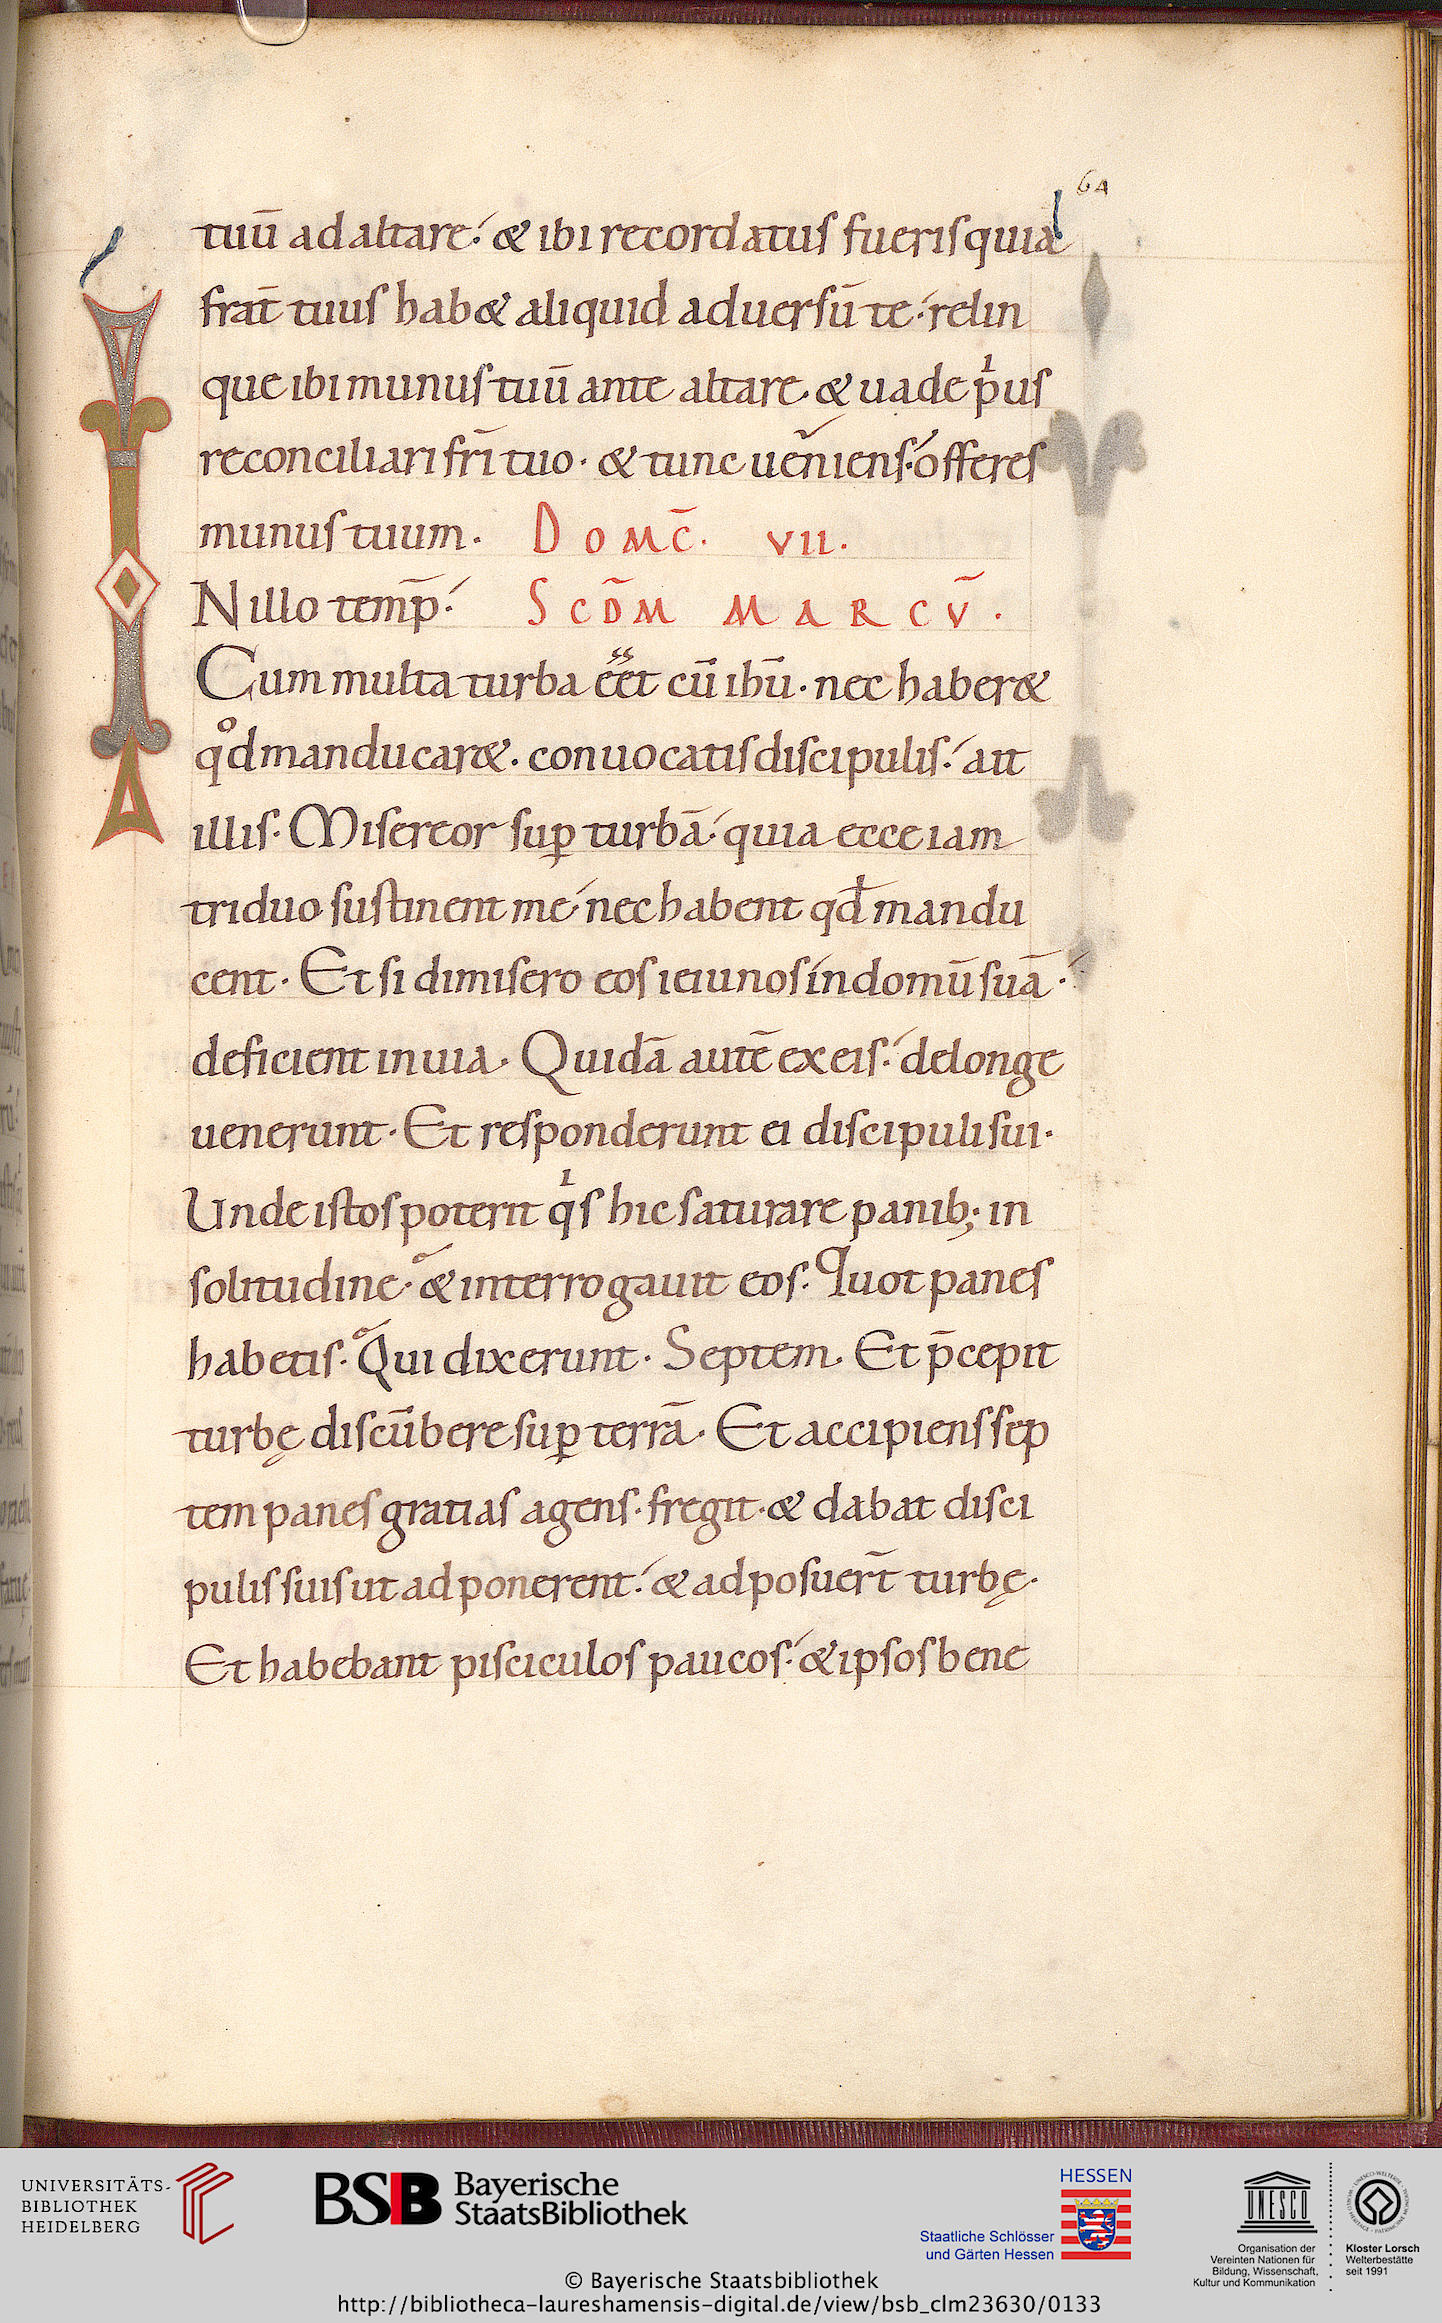 64
tuū ad altare⸵ & ibi recordatus fueris quia
frat̄ tuus hab& aliquid aduersū te⸵ relin
que ibi munus tuū ante altare. & uade pͥus
reconciliari fr̄i tuo. & tunc ueniens⸵ offeres
munus tuum. DOMC̄. VII.
IN illo temp̄⸵ SCD̄M MARCV̄.
Cum multa turba eēt cū ihū. nec haber&
qͦd manducar&. conuocatis discipulis⸵ ait
illis. Misereor suꝑ turbā⸵ quia ecce iam
triduo sustinent me⸵ nec habent qđ mandu
cent. Et si dimisero eos ieiunos in domū suā⸵
deficient in uia. Quidā autē ex eis⸵ de longe
uenerunt. Et responderunt ei discipuli sui.
Unde istos poterit qͥs hic saturare panib; in
solitudine. & interrogauit eos. Quot panes
habetis. Qui dixerunt. Septem. Et p̄cepit
turbę discūbere suꝑ terrā. Et accipiens sep
tem panes gratias agens. fregit. & dabat disci
pulis suis ut adponerent⸵ & adposuer̄t turbę.
Et habebant pisciculos paucos⸵ & ipsos bene
UNIVERSITÄTS-
BIBLIOTHEK
HEIDELBERG
BSB Bayerische
StaatsBibliothek
HESSEN
Staatliche Schlösser
und Gärten Hessen
UNESCO
Organisation der
Vereinten Nationen für
Bildung, Wissenschaft,
Kultur und Kommunikation
Kloster Lorsch
Welterbestätte
seit 1991
© Bayerische Staatsbibliothek
http://bibliotheca-laureshamensis-digital.de/view/bsb_clm23630/0133